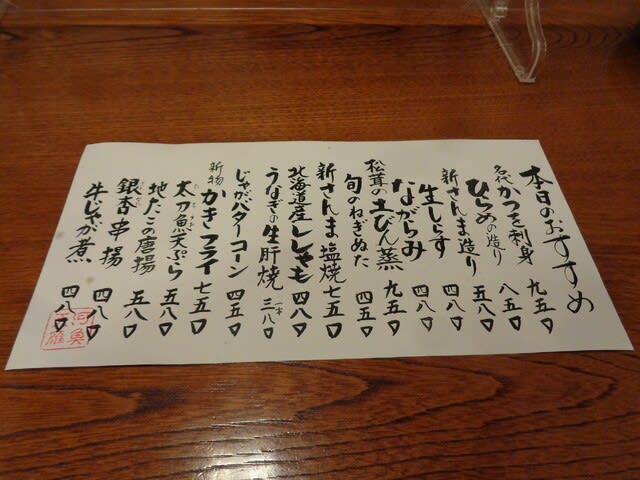 本日のおすすめ
名代 かつを刺身 九五〇
ひらめの造り 八五〇
新さんま造り 五八〇
生しらす 四八〇
ながらみ 四八〇
松茸の土びん蒸 九五〇
旬のねぎぬた 四五〇
新さんま塩焼 七五〇
北海道産ししゃも 四八〇
うなぎの生肝焼 一本 三八〇
じゃがバターコーン 四五〇
新物 かきフライ 七五〇
太刀魚天ぷら 五八〇
地たこの唐揚 五八〇
銀杏串揚 四八〇
牛じゃが煮 四八〇